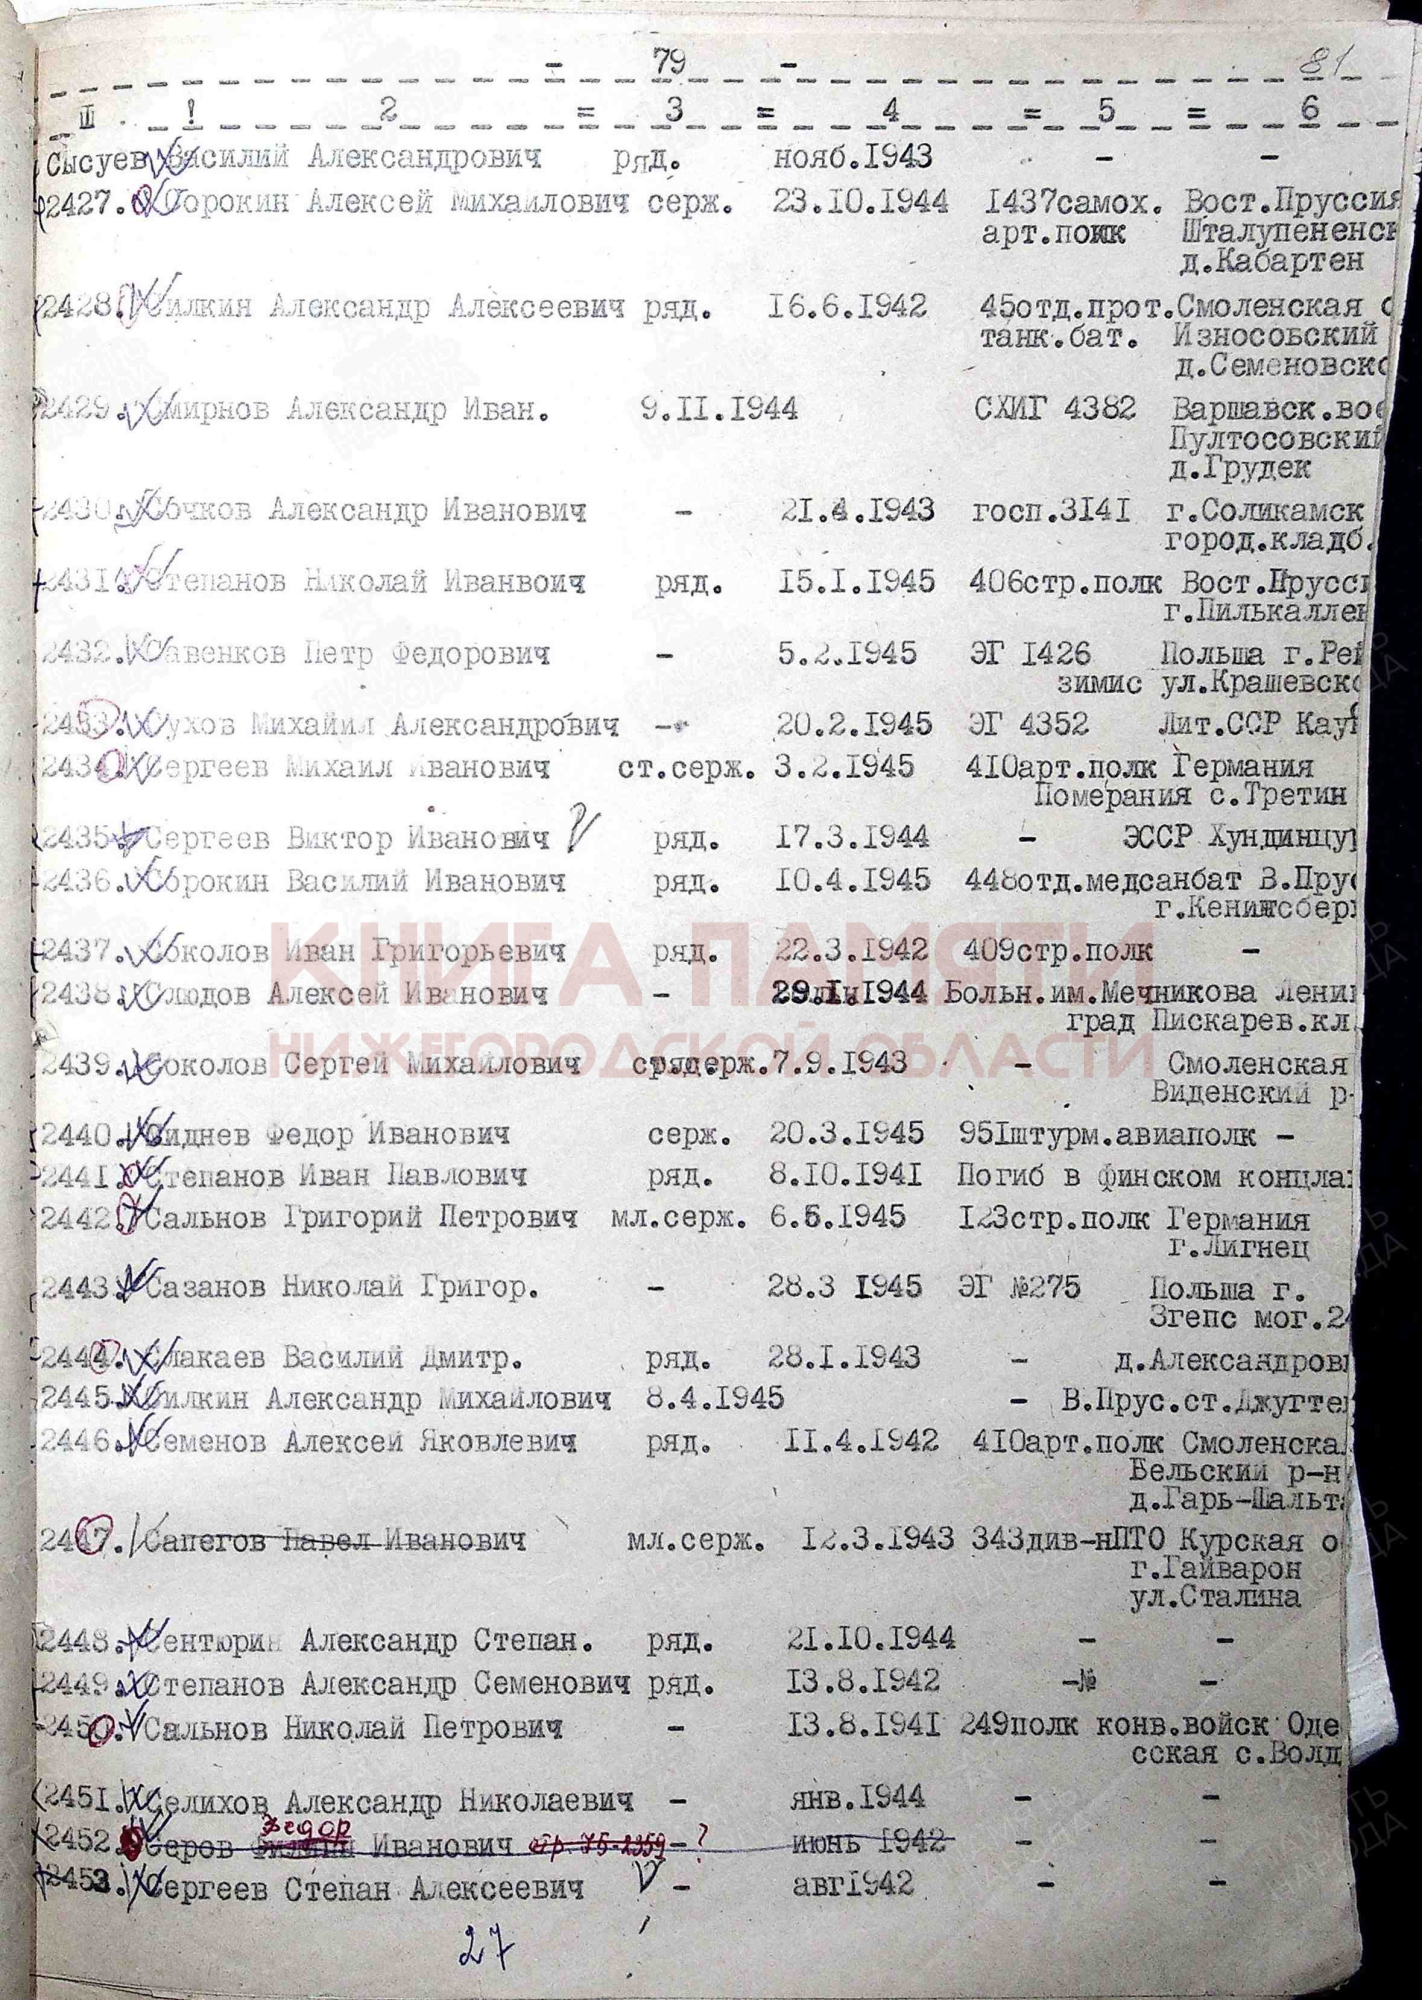 - 79 -
81
I ! 2 = 3 = 4 = 5 = 6
Сысуев Василий Александрович ряд. нояб.1943 - -
2427. Сорокин Алексей Михайлович серж. 23.10.1944 1437самох. Вост.Пруссия
арт.полк Шталупененск
д.Кабартен
2428. Силкин Александр Алексеевич ряд. 16.6.1942 45отд.прот.Смоленская о
танк.бат. Износовский
д.Семеновско
2429. Смирнов Александр Иван. 9.II.1944 СХИГ 4382 Варшавск.вое
Пултосовский
д.Грудек
2430. Сочков Александр Иванович - 21.4.1943 госп.3141 г.Соликамск
город.кладб.
2431. Степанов Николай Иванвоич ряд. 15.1.1945 406стр.полк Вост.Прусси
г.Пилькаллен
2432. Савенков Петр Федорович - 5.2.1945 ЭГ 1426 Польша г.Рей
зимис ул.Крашевско
2433. Сухов Михайил Александрович - 20.2.1945 ЭГ 4352 Лит.ССР Каун
2434. Сергеев Михаил Иванович ст.серж. 3.2.1945 410арт.полк Германия
Померания с.Третин
2435. Сергеев Виктор Иванович ряд. 17.3.1944 - ЭССР Хундинцур
2436. Сорокин Василий Иванович ряд. 10.4.1945 448отд.медсанбат В.Прус
г.Кенигсберг
КНИГА ПАМЯТИ
2437. Соколов Иван Григорьевич ряд. 22.3.1942 409стр.полк -
2438. Слюдов Алексей Иванович - 29.1.1944 Больн.им.Мечникова Ленин
град Пискарев.кл.
НИЖЕГОРОДСКОЙ ОБЛАСТИ
2439. Соколов Сергей Михайлович серж. 7.9.1943 - Смоленская
Виденский р-
2440. Сиднев Федор Иванович серж. 20.3.1945 951штурм.авиаполк -
2441. Степанов Иван Павлович ряд. 8.10.1941 Погиб в финском концлаг
2442. Сальнов Григорий Петрович мл.серж. 6.5.1945 123стр.полк Германия
г.Лигнец
2443. Сазанов Николай Григор. - 28.3 1945 ЭГ №275 Польша г.
Згепс мог.24
2444. Слакаев Василий Дмитр. ряд. 28.1.1943 - д.Александров
2445. Силкин Александр Михайлович 8.4.1945 - В.Прус.ст.Джугте
2446. Семенов Алексей Яковлевич ряд. 11.4.1942 410арт.полк Смоленская
Бельский р-н
д.Гарь-Шальта
2447. Сапегов Павел Иванович мл.серж. 12.3.1943 343див-нПТО Курская о
г.Гайварон
ул.Сталина
2448. Сентюрин Александр Степан. ряд. 21.10.1944 - -
2449. Степанов Александр Семенович ряд. 13.8.1942 -№ -
2450. Сальнов Николай Петрович - 13.8.1941 249полк конв.войск Оде
сская с.Волд
2451. Селихов Александр Николаевич - янв.1944 - -
Федор
2452. Серов Филипп Иванович стр.75-2359 - ? июнь 1942 - -
2453. Сергеев Степан Алексеевич - авг1942 - -
27